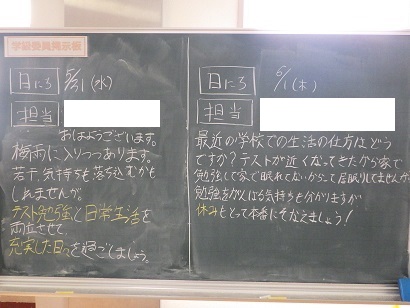 学級委員掲示板
日にち 5/31(水)
担当
おはようございます。
梅雨に入りつつあります。
若干、気持ちも落ち込むかも
しれませんが、
テスト勉強と日常生活を
両立させて
充実した日々を過ごしましょう。
日にち 6/1(木)
担当
最近の学校での生活の仕方はどう
ですか?テストが近くなってきたから家で
勉強して家で眠れてないからって居眠りしてませんか
勉強をがんばる気持ちも分かりますが
休みもとって本番にそなえましょう!